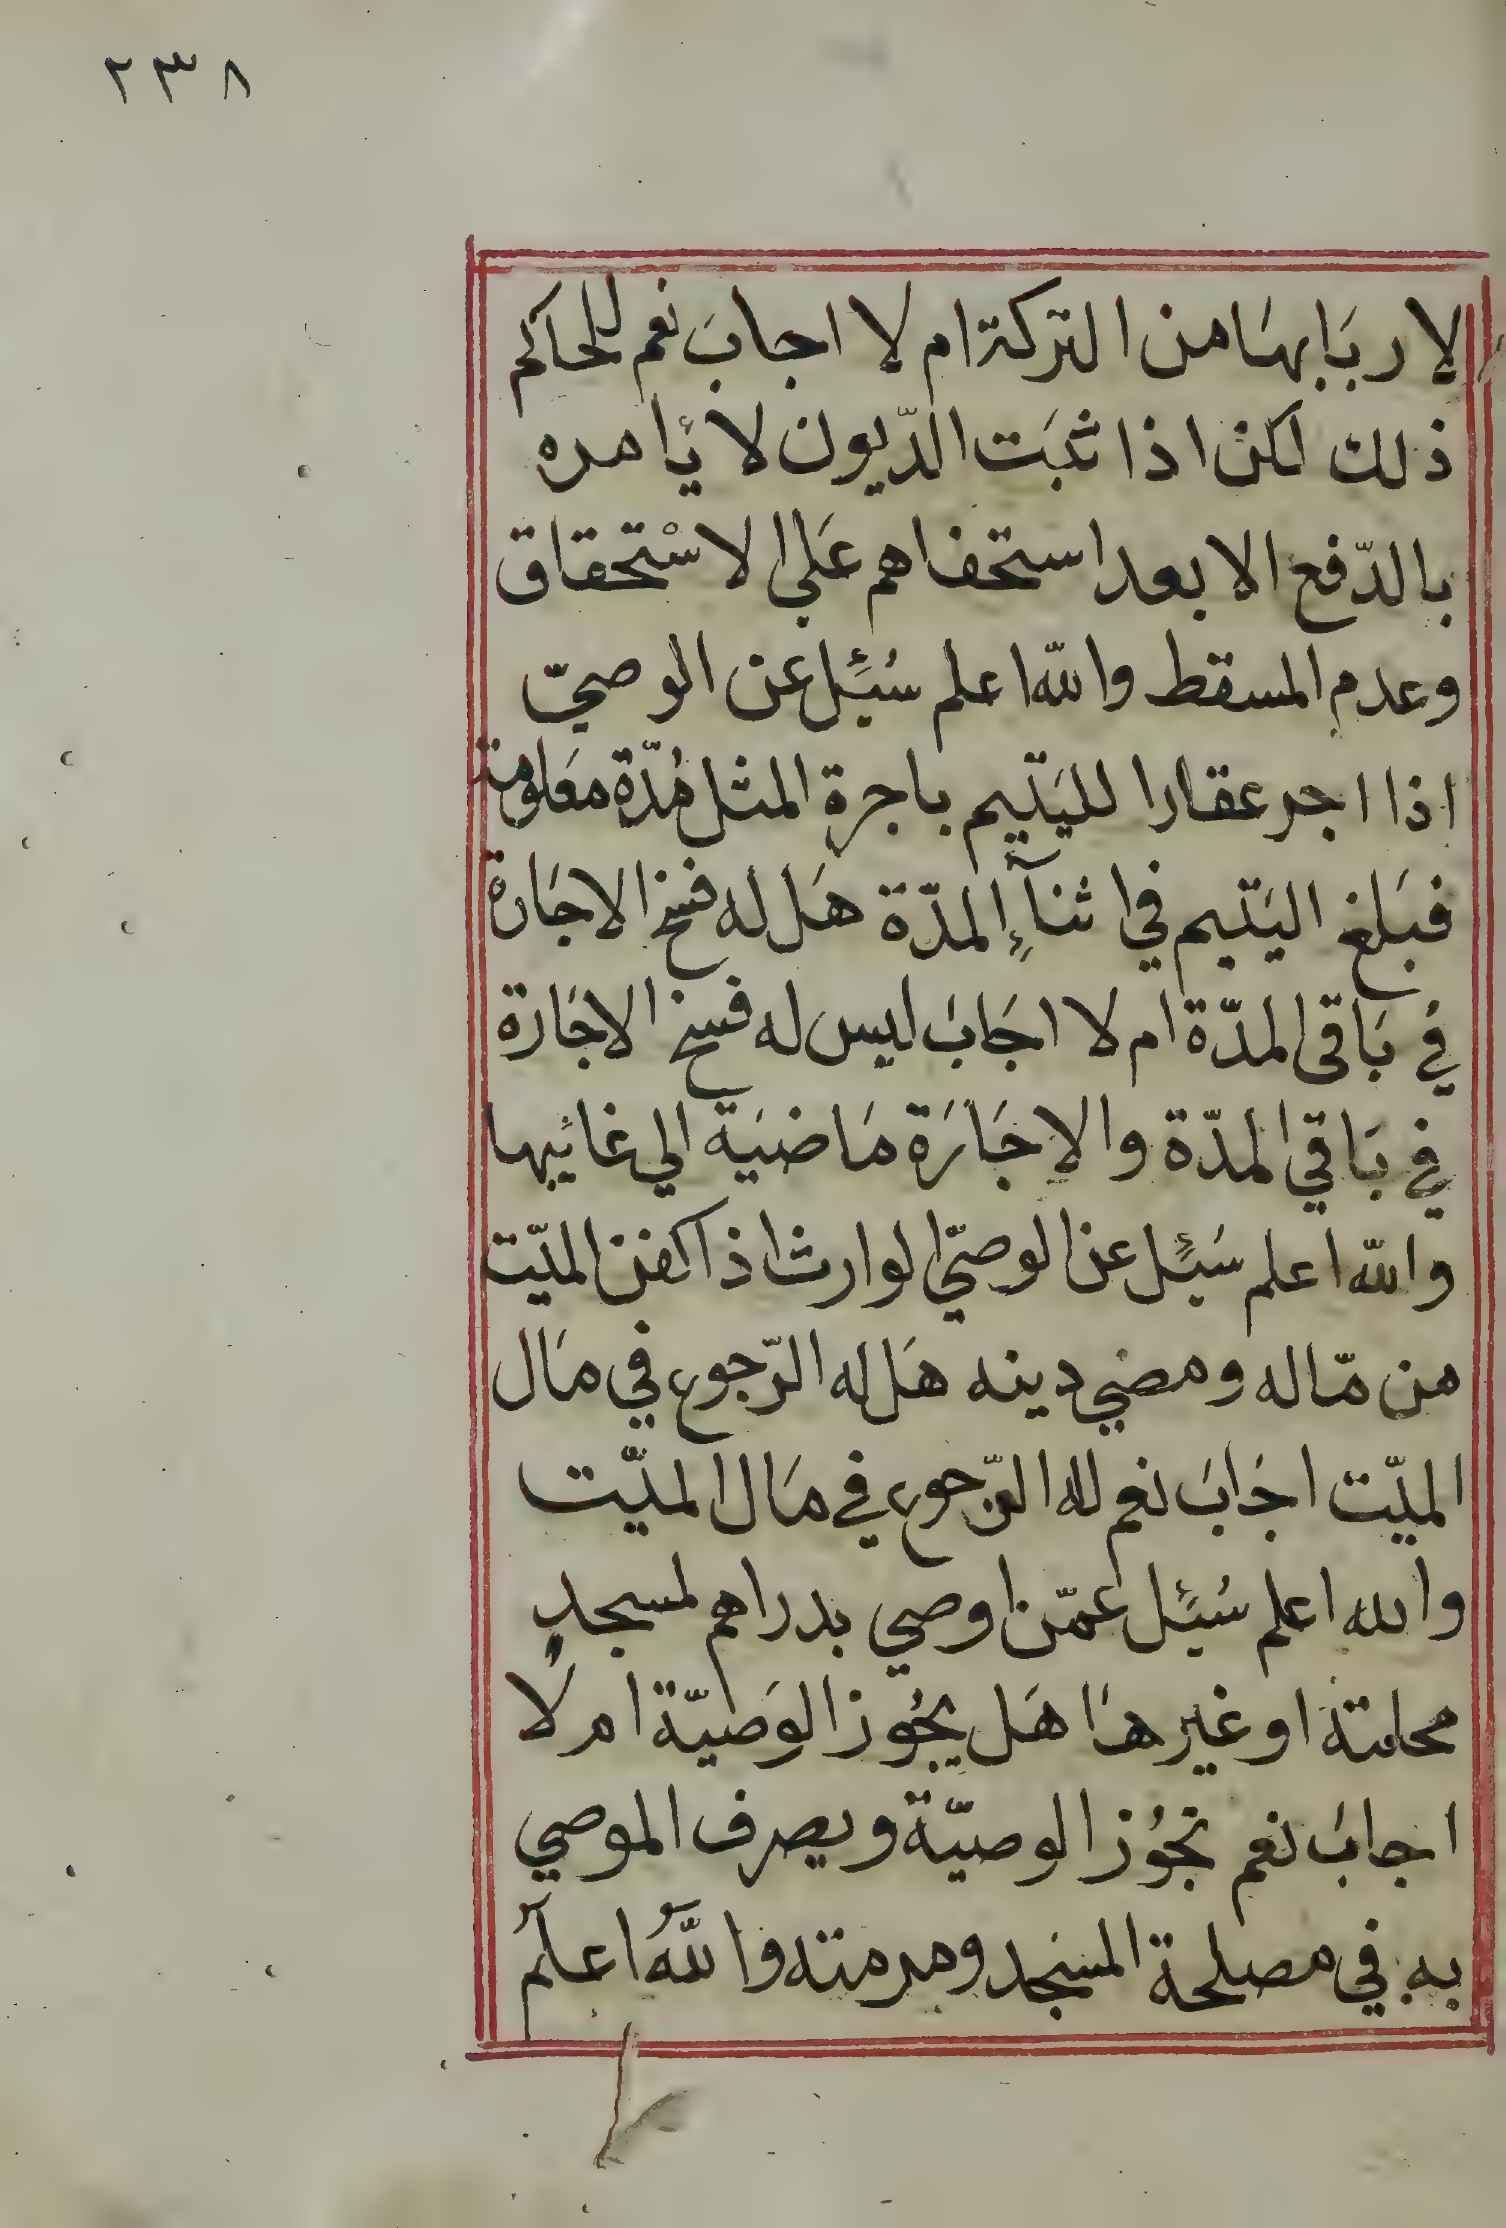 ٢٣٨
لاربابها من التركة ام لا اجاب نعم للحاكم
ذلك لكن اذا ثبت الدّيون لا يأامره
بالدّفع الا بعد استحفاهم علي الاستحقاق
وعدم المسقط والله اعلم سُئِل عن الوصيّ
اذا اجر عقارا لليتيم باجرة المثل مُدّة معلومة
فبلغ اليتيم في اثنآءِ المدّة هل له فسخ الاجارة
في باقي المدّة ام لا اجاب ليس له فسخ الاجارة
في باقي المدّة والاجارة ماضية الي غائيها
والله اعلم سُئِل عن الوصيّ الوارث اذا كفن الميّت
من مّاله ومضي دينه هل له الرّجوع في مال
الميّت اجاب نعم لله الرّجوع في مال الميّت
والله اعلم سُئِل عمّن اوصي بدراهم لمسجدٍ
محلته او غيرها هل يجُوز الوصيّة ام لا
اجاب نعم تجُوز الوصيّة ويصرف الموصي
به في مصلحة المسجد ومرمته والله اعلم